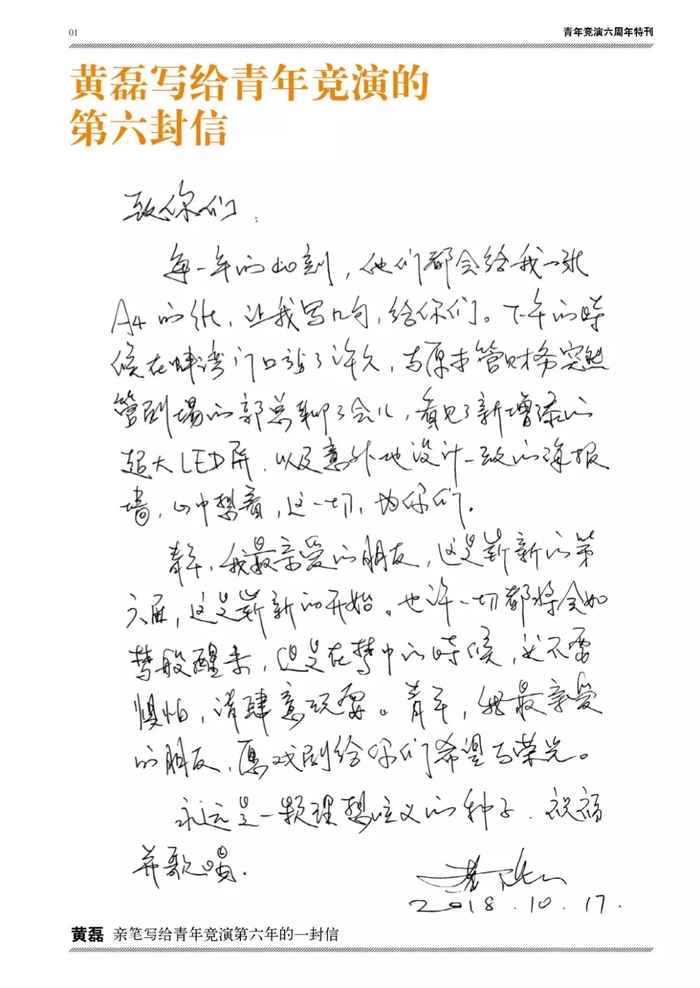 01
青年竞演六周年特刊
黄磊写给青年竞演的
第六封信
致你们：
每一年的此刻，他们都会给我一张
A4的纸，让我写几句，给你们。下午的時
候在蚌湾门口站了许久，与原本管财务突然
管剧場的郭总聊了会儿，看见了新增添的
超大LED屏，以及意外地设计一致的海报
墙，心中想着，这一切，为你们。
青年，我最亲爱的朋友，这是崭新的第
六届，这是崭新的开始。也许一切都将会如
梦般醒来，但是在梦中的時候，必不要
惧怕，请肆意玩耍。青年，我最亲爱
的朋友，愿戏剧给你们希望与荣光。
永远是一颗理想主义的种子，祝福
并歌唱．
黄磊
2018．10．17．
黄磊 亲笔写给青年竞演第六年的一封信